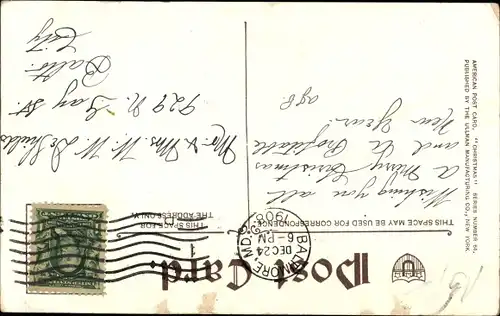 Post Card.
THIS SPACE MAY BE USED FOR CORRESPONDENCE
THIS SPACE FOR
THE ADDRESS ONLY.
BALTIMORE, MD.
DEC 24
6-PM
1908
Wishing you all
a Merry Christmas
and a Profitable
New Year.
Mr. & Mrs. W. W.
929 N. Gay St.
Balto.
City
AMERICAN POST CARD. "CHRISTMAS" SERIES NUMBER
PUBLISHED BY THE ULLMAN MANUFACTURING CO., NEW YORK.